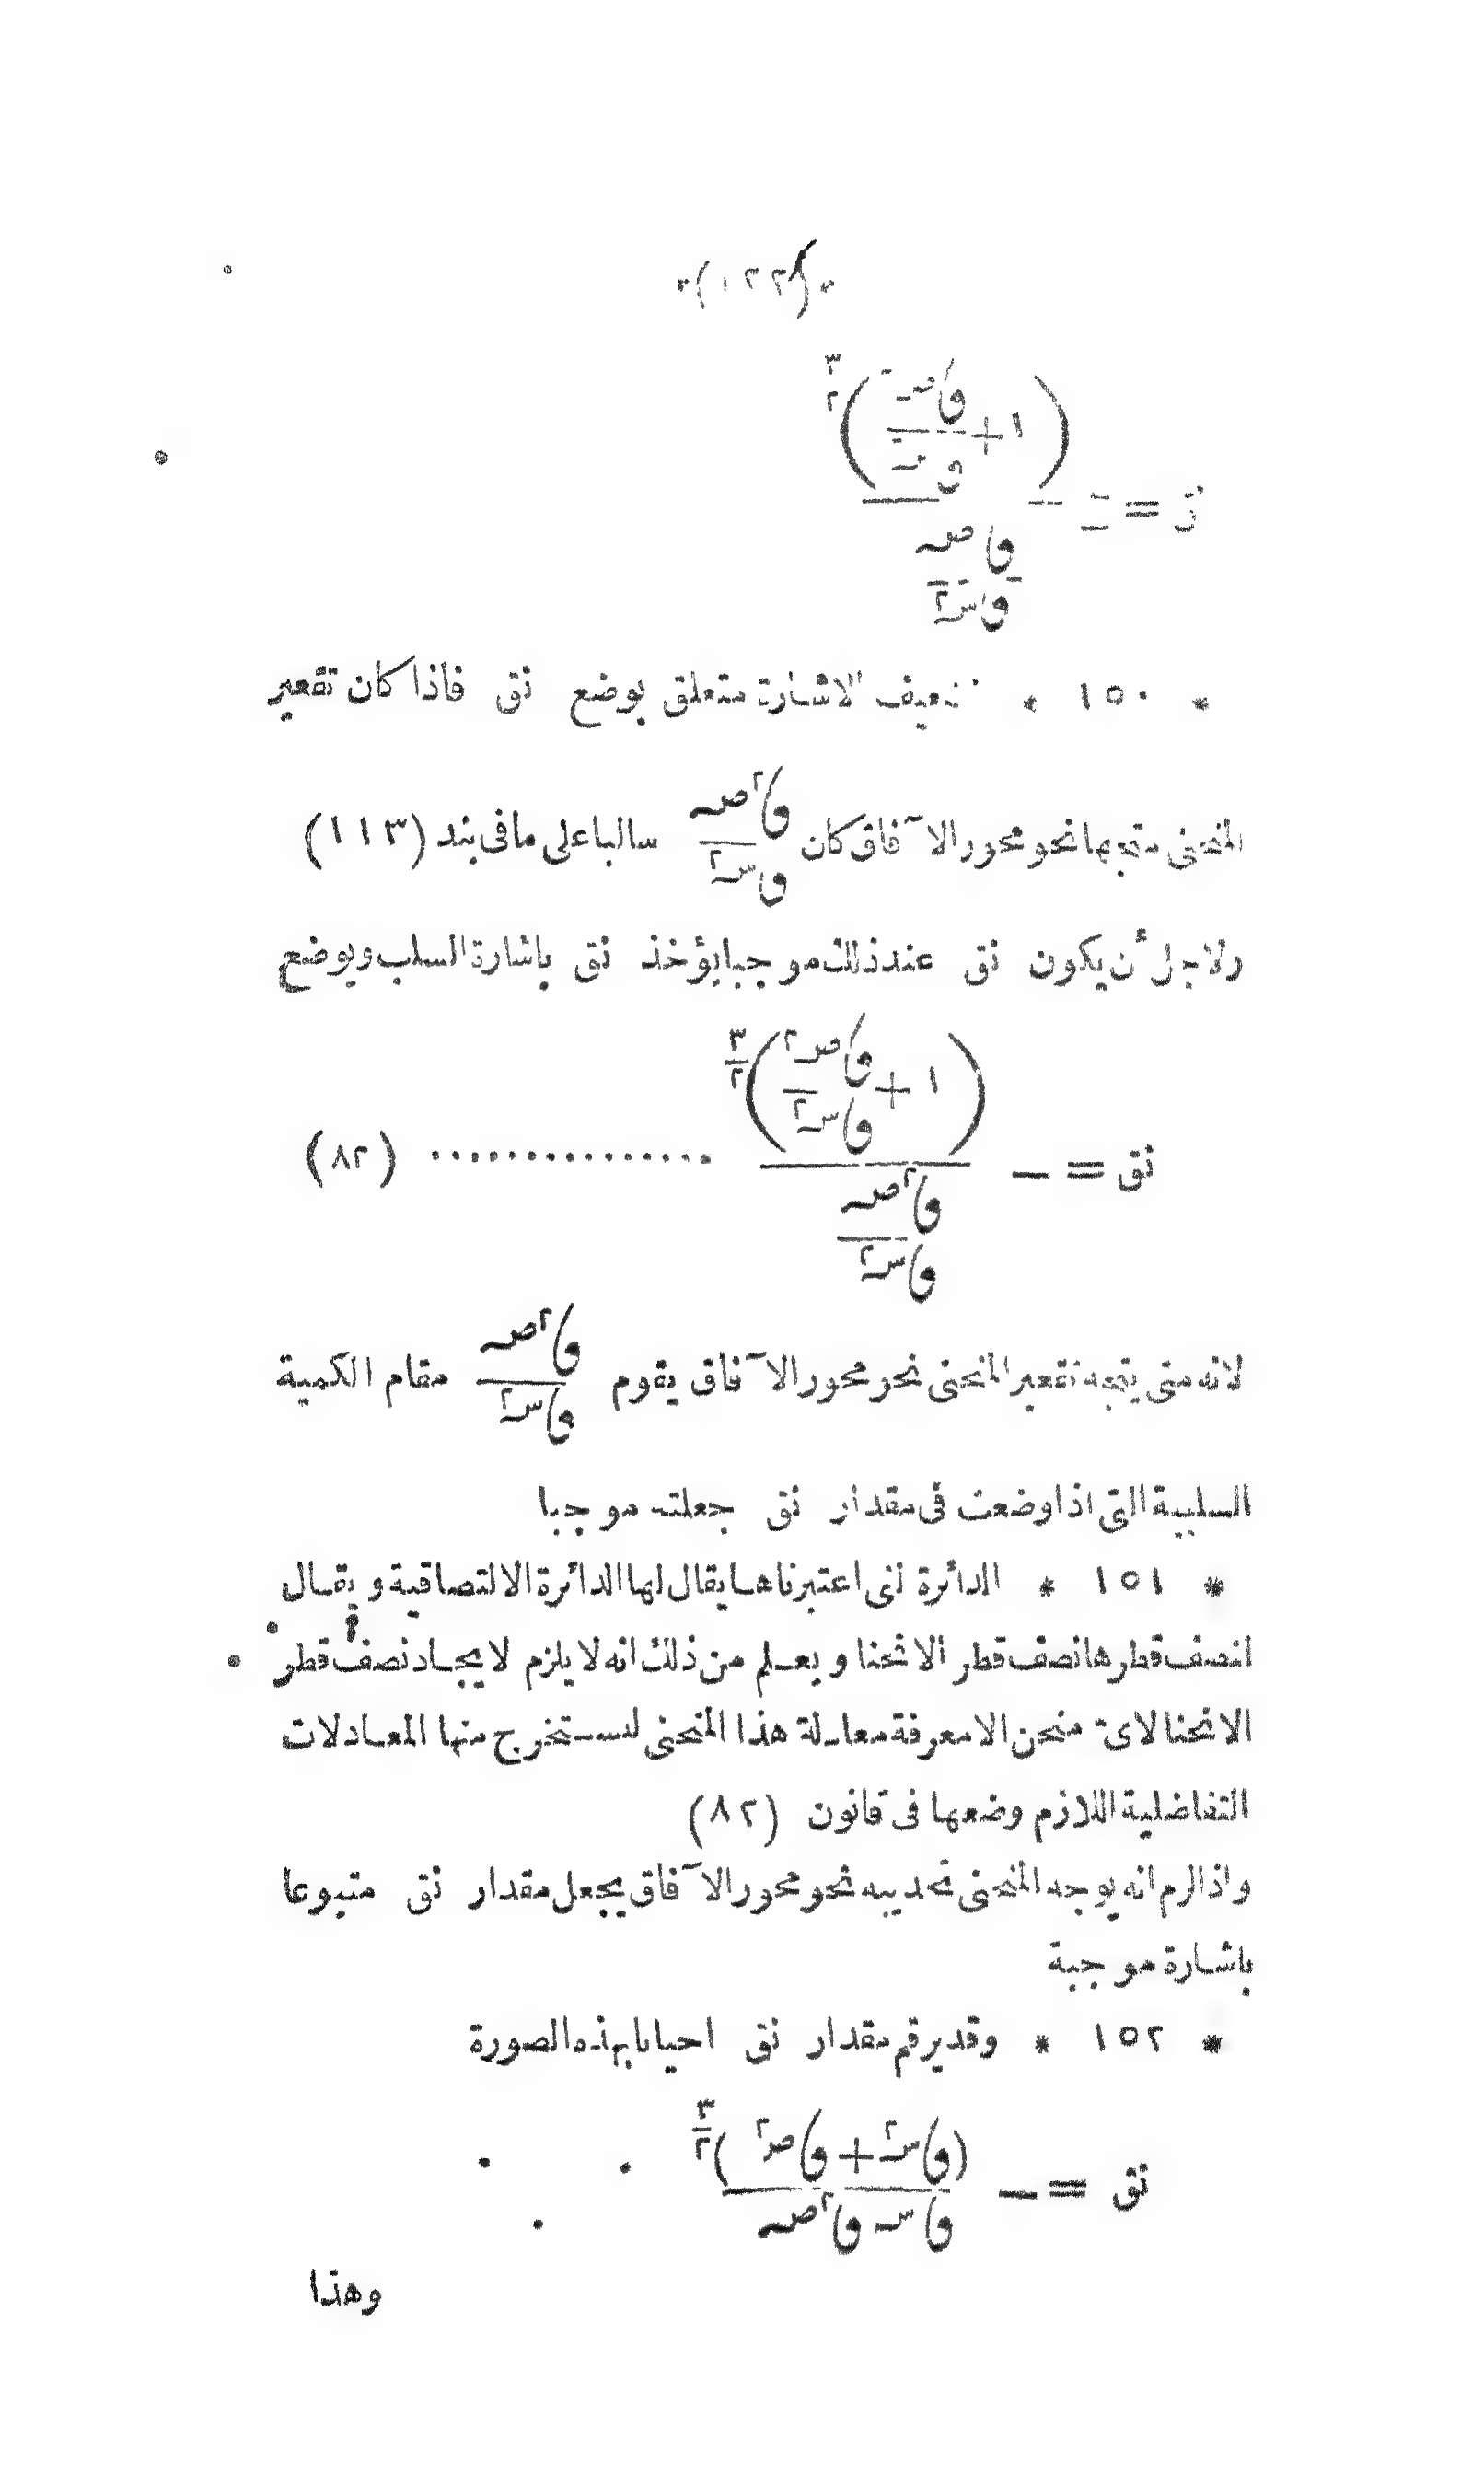 *(١٢٢)*
نق = ± (١ + و\صـ٢ / و\سـ٢)^٣/٢ / (و\صـ / و\سـ٢)
* ١٥٠ * الاشارة متعلق بوضع نق فاذا كان تقعير
المنحنى متجها نحو محور الآفاق كان و\٢صـ / و\سـ٢ سالبا على ما فى بند (١١٣)
ولاجل أن يكون نق عند ذلك موجبا يؤخذ نق باشارة السلب ويوضع
نق = − (١ + و\صـ٢ / و\سـ٢)^٣/٢ / (و\٢صـ / و\سـ٢) ............... (٨٢)
لانه متى يتجه تقعير المنحنى نحو محور الآفاق يقوم و\٢صـ / و\سـ٢ مقام الكمية
السلبية التى اذا وضعت فى مقدار نق جعلته موجبا
* ١٥١ * الدائرة التى اعتبرناها يقال لها الدائرة الالتصاقية ويقال
لنصف قطرها نصف قطر الانحنا ويعلم من ذلك انه لا يلزم لايجاد نصف قطر
الانحنا لاى منحن الا معرفة معادلة هذا المنحنى لستخرج منها المعادلات
التفاضلية اللازم وضعها فى قانون (٨٢)
واذا لزم انه يوجه المنحنى تحديبه نحو محور الآفاق يجعل مقدار نق متبوعا
باشارة موجبة
* ١٥٢ * وقد يرقم مقدار نق احيانا بهذه الصورة
نق = − (و\سـ٢ + و\صـ٢)^٣/٢ / و\سـ و\٢صـ
وهذا